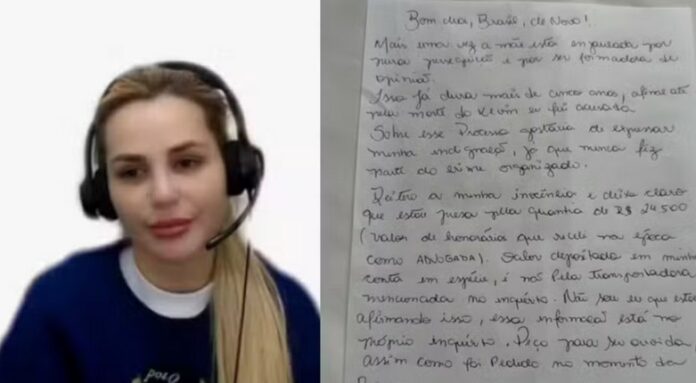 Bom dia, Brasil, de Novo!
Mais uma vez a mãe está enjaulada por
pura perseguição e por ser formadora de
opinião.
Isso já dura mais de cinco anos, afinal até
pela morte do Kevin eu fui acusada
Sobre esse Processo gostaria de expressar
minha indignação, já que nunca fiz
parte do crime organizado.
Reitero a minha inocência e deixo claro
que estou presa pela quantia de R$ 24.500
(valor de honorários que recebi na época
como ADVOGADA). Valor depositado em minha
conta em espécie, e não pela transportadora
mencionada no inquérito. Não sou eu que estou
afirmando isso, essa informação está no
próprio inquérito. Peço para ser ouvida,
assim como foi Pedido no momento da
POLO